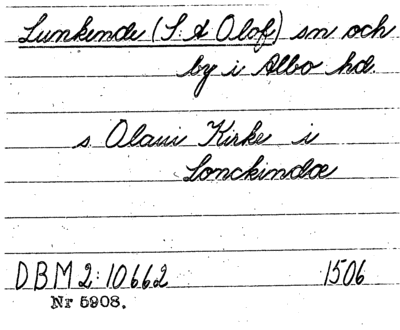 Lunkende (S:t Olof) sn och
by i Albo hd.
s Olaui Kirke i
Lonckindæ
DBM 2:10662 1506
Nr 5908.